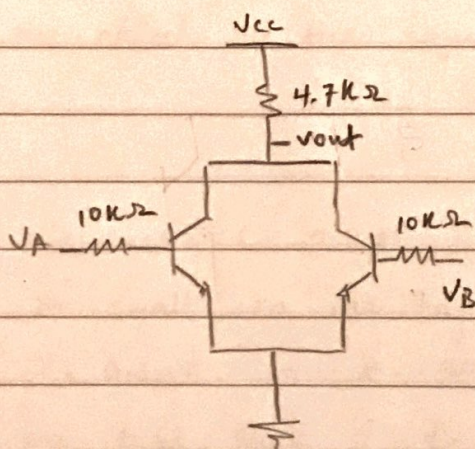 Vcc
4.7KΩ
Vout
10KΩ
10KΩ
VA
VB